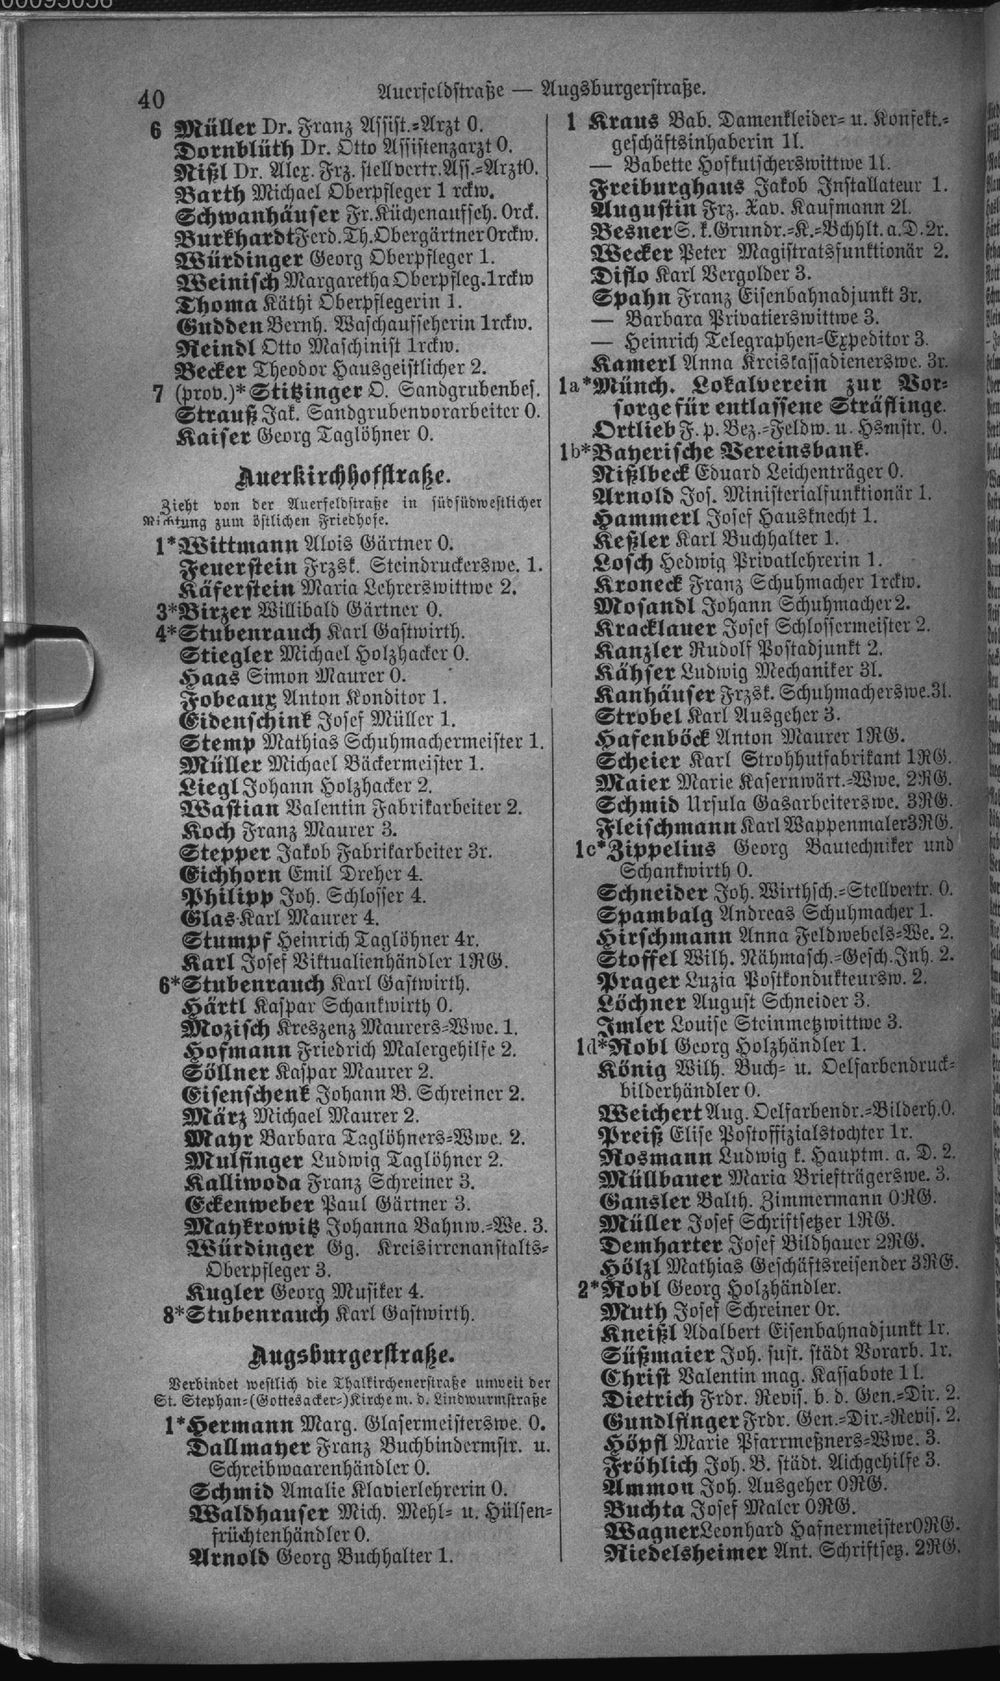 40
Auerfeldstraße — Augsburgerstraße.
6 Müller Dr. Franz Assist.=Arzt 0.
Dornblüth Dr. Otto Assistenzarzt 0.
Nißl Dr. Alex. Frz. stellvertr. Ass.=Arzt 0.
Barth Michael Oberpfleger 1 rckw.
Schwanhäuser Fr. Küchenaufseh. 0rck.
Burkhardt Ferd. Th. Obergärtner 0rckw.
Würdinger Georg Oberpfleger 1.
Weinisch Margaretha Oberpfleg. 1rckw
Thoma Käthi Oberpflegerin 1.
Gudden Bernh. Waschaufseherin 1rckw.
Reindl Otto Maschinist 1rckw.
Becker Theodor Hausgeistlicher 2.
7 (prov.)* Stitzinger O. Sandgrubenbes.
Strauß Jak. Sandgrubenvorarbeiter 0.
Kaiser Georg Taglöhner 0.
Auerkirchhofstraße.
Zieht von der Auerfeldstraße in südsüdwestlicher
Richtung zum östlichen Friedhofe.
1* Wittmann Alois Gärtner 0.
Feuerstein Frzsk. Steindruckerswe. 1.
Käferstein Maria Lehrerswittwe 2.
3* Birzer Willibald Gärtner 0.
4* Stubenrauch Karl Gastwirth.
Stiegler Michael Holzhacker 0.
Haas Simon Maurer 0.
Fobeaux Anton Konditor 1.
Eidenschink Josef Müller 1.
Stemp Mathias Schuhmachermeister 1.
Müller Michael Bäckermeister 1.
Liegl Johann Holzhacker 2.
Wastian Valentin Fabrikarbeiter 2.
Koch Franz Maurer 3.
Stepper Jakob Fabrikarbeiter 3r.
Eichhorn Emil Dreher 4.
Philipp Joh. Schlosser 4.
Glas Karl Maurer 4.
Stumpf Heinrich Taglöhner 4r.
Karl Josef Viktualienhändler 1RG.
6* Stubenrauch Karl Gastwirth.
Härtl Kaspar Schankwirth 0.
Mozisch Kreszenz Maurers=Wwe. 1.
Hofmann Friedrich Malergehilfe 2.
Söllner Kaspar Maurer 2.
Eisenschenk Johann B. Schreiner 2.
März Michael Maurer 2.
Mayr Barbara Taglöhners=Wwe. 2.
Mulfinger Ludwig Taglöhner 2.
Kalliwoda Franz Schreiner 3.
Eckenweber Paul Gärtner 3.
Maykrowitz Johanna Bahnw.=We. 3.
Würdinger Gg. Kreisirrenanstalts=
Oberpfleger 3.
Kugler Georg Musiker 4.
8* Stubenrauch Karl Gastwirth.
Augsburgerstraße.
Verbindet westlich die Thalkirchenerstraße unweit der
St. Stephan=(Gottesacker=)Kirche m. d. Lindwurmstraße
1* Hermann Marg. Glasermeisterswe. 0.
Dallmayer Franz Buchbindermstr. u.
Schreibwaarenhändler 0.
Schmid Amalie Klavierlehrerin 0.
Waldhauser Mich. Mehl= u. Hülsen=
früchtenhändler 0.
Arnold Georg Buchhalter 1.
1 Kraus Bab. Damenkleider= u. Konfekt.=
geschäftsinhaberin 1l.
— Babette Hofkutscherswittwe 1l.
Freiburghaus Jakob Installateur 1.
Augustin Frz. Xav. Kaufmann 2l.
Besner S. k. Grundr.=K.=Bchhlt. a. D. 2r.
Wecker Peter Magistratsfunktionär 2.
Diflo Karl Vergolder 3.
Spahn Franz Eisenbahnadjunkt 3r.
— Barbara Privatierswittwe 3.
— Heinrich Telegraphen=Expeditor 3.
Kamerl Anna Kreiskassadienerswe. 3r.
1a* Münch. Lokalverein zur Vor=
sorge für entlassene Sträflinge.
Ortlieb F. p. Bez.=Feldw. u. Hsmstr. 0.
1b* Bayerische Vereinsbank.
Nißlbeck Eduard Leichenträger 0.
Arnold Jos. Ministerialfunktionär 1.
Hammerl Josef Hausknecht 1.
Keßler Karl Buchhalter 1.
Losch Hedwig Privatlehrerin 1.
Kroneck Franz Schuhmacher 1rckw.
Mosandl Johann Schuhmacher 2.
Kracklauer Josef Schlossermeister 2.
Kanzler Rudolf Postadjunkt 2.
Kähser Ludwig Mechaniker 3l.
Kanhäuser Frzsk. Schuhmacherswe. 3l.
Strobel Karl Ausgeher 3.
Hafenböck Anton Maurer 1RG.
Scheier Karl Strohhutfabrikant 1RG.
Maier Marie Kasernwärt.=Wwe. 2RG.
Schmid Ursula Gasarbeiterswe. 3RG.
Fleischmann Karl Wappenmaler 3RG.
1c* Zippelius Georg Bautechniker und
Schankwirth 0.
Schneider Joh. Wirthsch.=Stellvertr. 0.
Spambalg Andreas Schuhmacher 1.
Hirschmann Anna Feldwebels=We. 2.
Stoffel Wilh. Nähmasch.=Gesch. Inh. 2.
Prager Luzia Postkondukteursw. 2.
Löchner August Schneider 3.
Imler Louise Steinmetzwittwe 3.
1d* Robl Georg Holzhändler 1.
König Wilh. Buch= u. Oelfarbendruck=
bilderhändler 0.
Weichert Aug. Oelfarbendr.=Bilderh. 0.
Preiß Elise Postoffizialstochter 1r.
Rosmann Ludwig k. Hauptm. a. D. 2.
Müllbauer Maria Briefträgerswe. 3.
Gansler Balth. Zimmermann 0RG.
Müller Josef Schriftsetzer 1RG.
Demharter Josef Bildhauer 2RG.
Hölzl Mathias Geschäftsreisender 3RG.
2* Robl Georg Holzhändler.
Muth Josef Schreiner 0r.
Kneißl Adalbert Eisenbahnadjunkt 1r.
Süßmaier Joh. sust. städt Vorarb. 1r.
Christ Valentin mag. Kassabote 1l.
Dietrich Frdr. Revis. b. d. Gen.=Dir. 2.
Gundlfinger Frdr. Gen.=Dir.=Revis. 2.
Höpfl Marie Pfarrmeßners=Wwe. 3.
Fröhlich Joh. B. städt. Aichgehilfe 3.
Ammon Joh. Ausgeher 0RG.
Buchta Josef Maler 0RG.
Wagner Leonhard Hafnermeister 0RG.
Riedelsheimer Ant. Schriftsetz. 2RG.